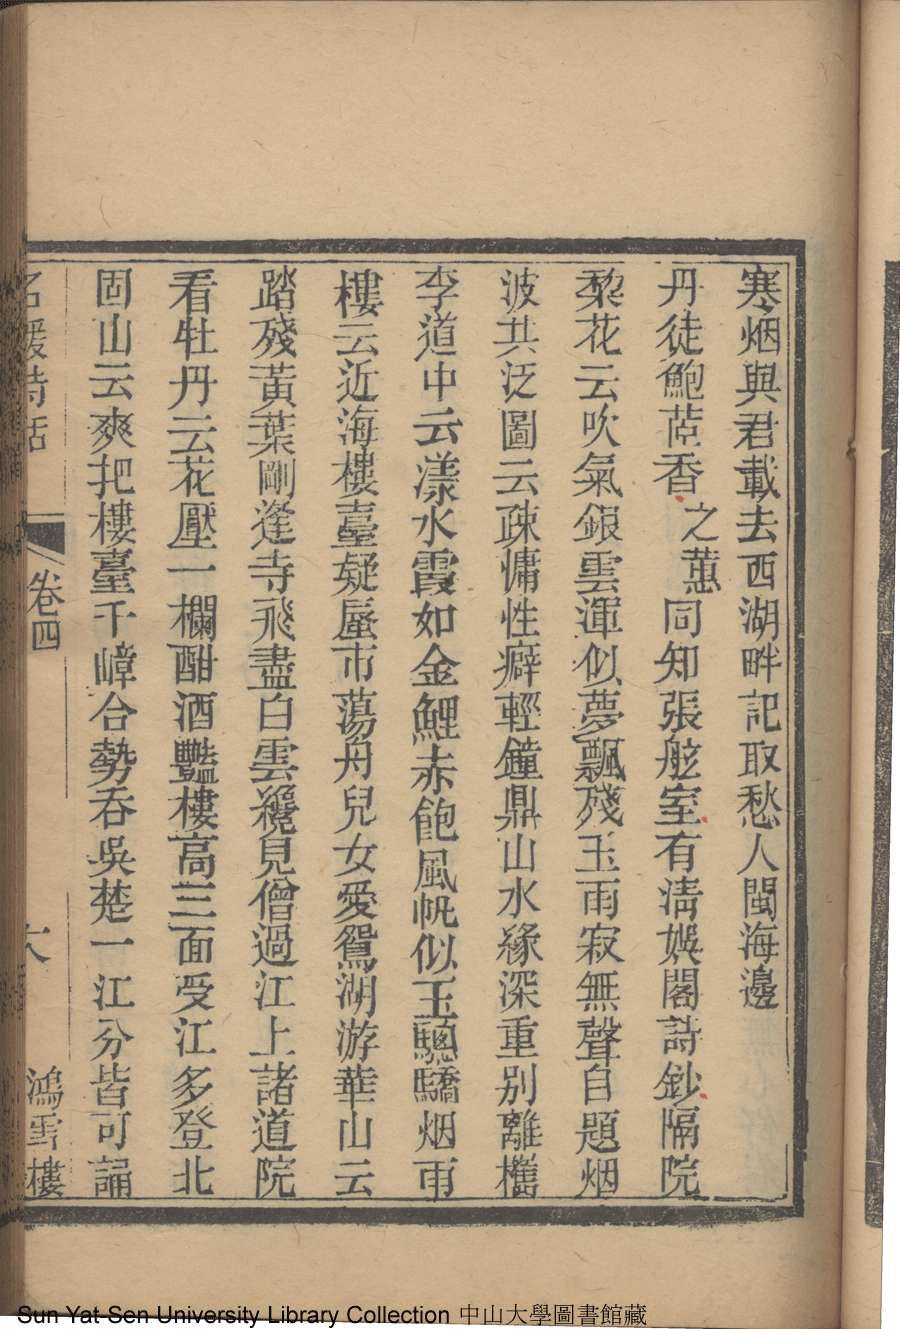 寒烟與君載去西湖畔記取愁人閩海邊
丹徒鮑茝香之蕙同知張舷室有清娛閣詩鈔隔院
棃花云吹氣銀雲渾似夢飄殘玉雨寂無聲自題烟
波共泛圖云疎慵性癖輕鐘鼎山水緣深重别離檇
李道中云漾水霞如金鯉赤飽風帆似玉驄驕烟雨
樓云近海樓臺疑蜃市蕩舟兒女愛鴛湖游華山云
踏殘黃葉剛逢寺飛盡白雲纔見僧過江上諸道院
看牡丹云花壓一欄酣酒豔樓高三面受江多登北
固山云爽把樓臺千嶂合勢吞吳楚一江分皆可誦
名媛詩話
卷四
鴻雪樓
Sun Yat Sen University Library Collection 中山大學圖書館藏